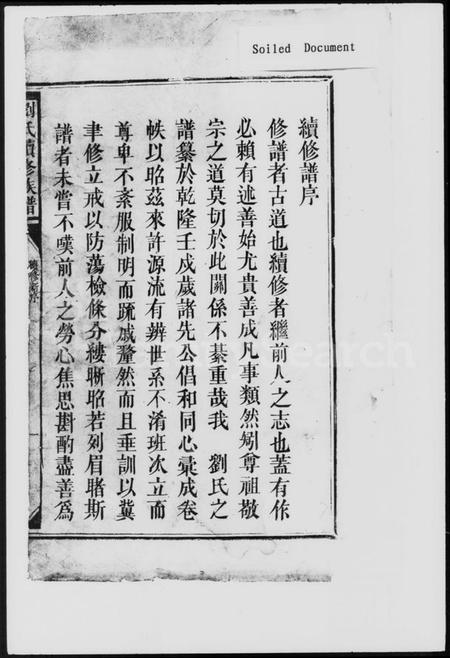 Soiled Document
續修譜序
修譜者古道也續修者繼前人之志也蓋有作
必賴有述善始尤貴善成凡事類然矧尊祖敬
宗之道莫切於此關係不綦重哉我 劉氏之
譜纂於乾隆壬戍歲諸先公倡和同心彚成卷
帙以昭茲來許源流有辨世系不淆班次立而
尊卑不紊服制明而疏戚釐然而且垂訓以冀
聿修立戒以防蕩檢條分縷晰昭若列眉睹斯
譜者未嘗不嘆前人之勞心焦思斟酌盡善為
劉氏續修族譜
續修新序